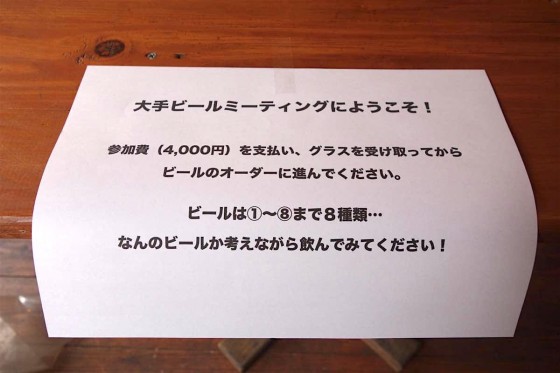 大手ビールミーティングにようこそ！
参加費（4,000円）を支払い、グラスを受け取ってから
ビールのオーダーに進んでください。
ビールは①〜⑧まで８種類…
なんのビールか考えながら飲んでみてください！